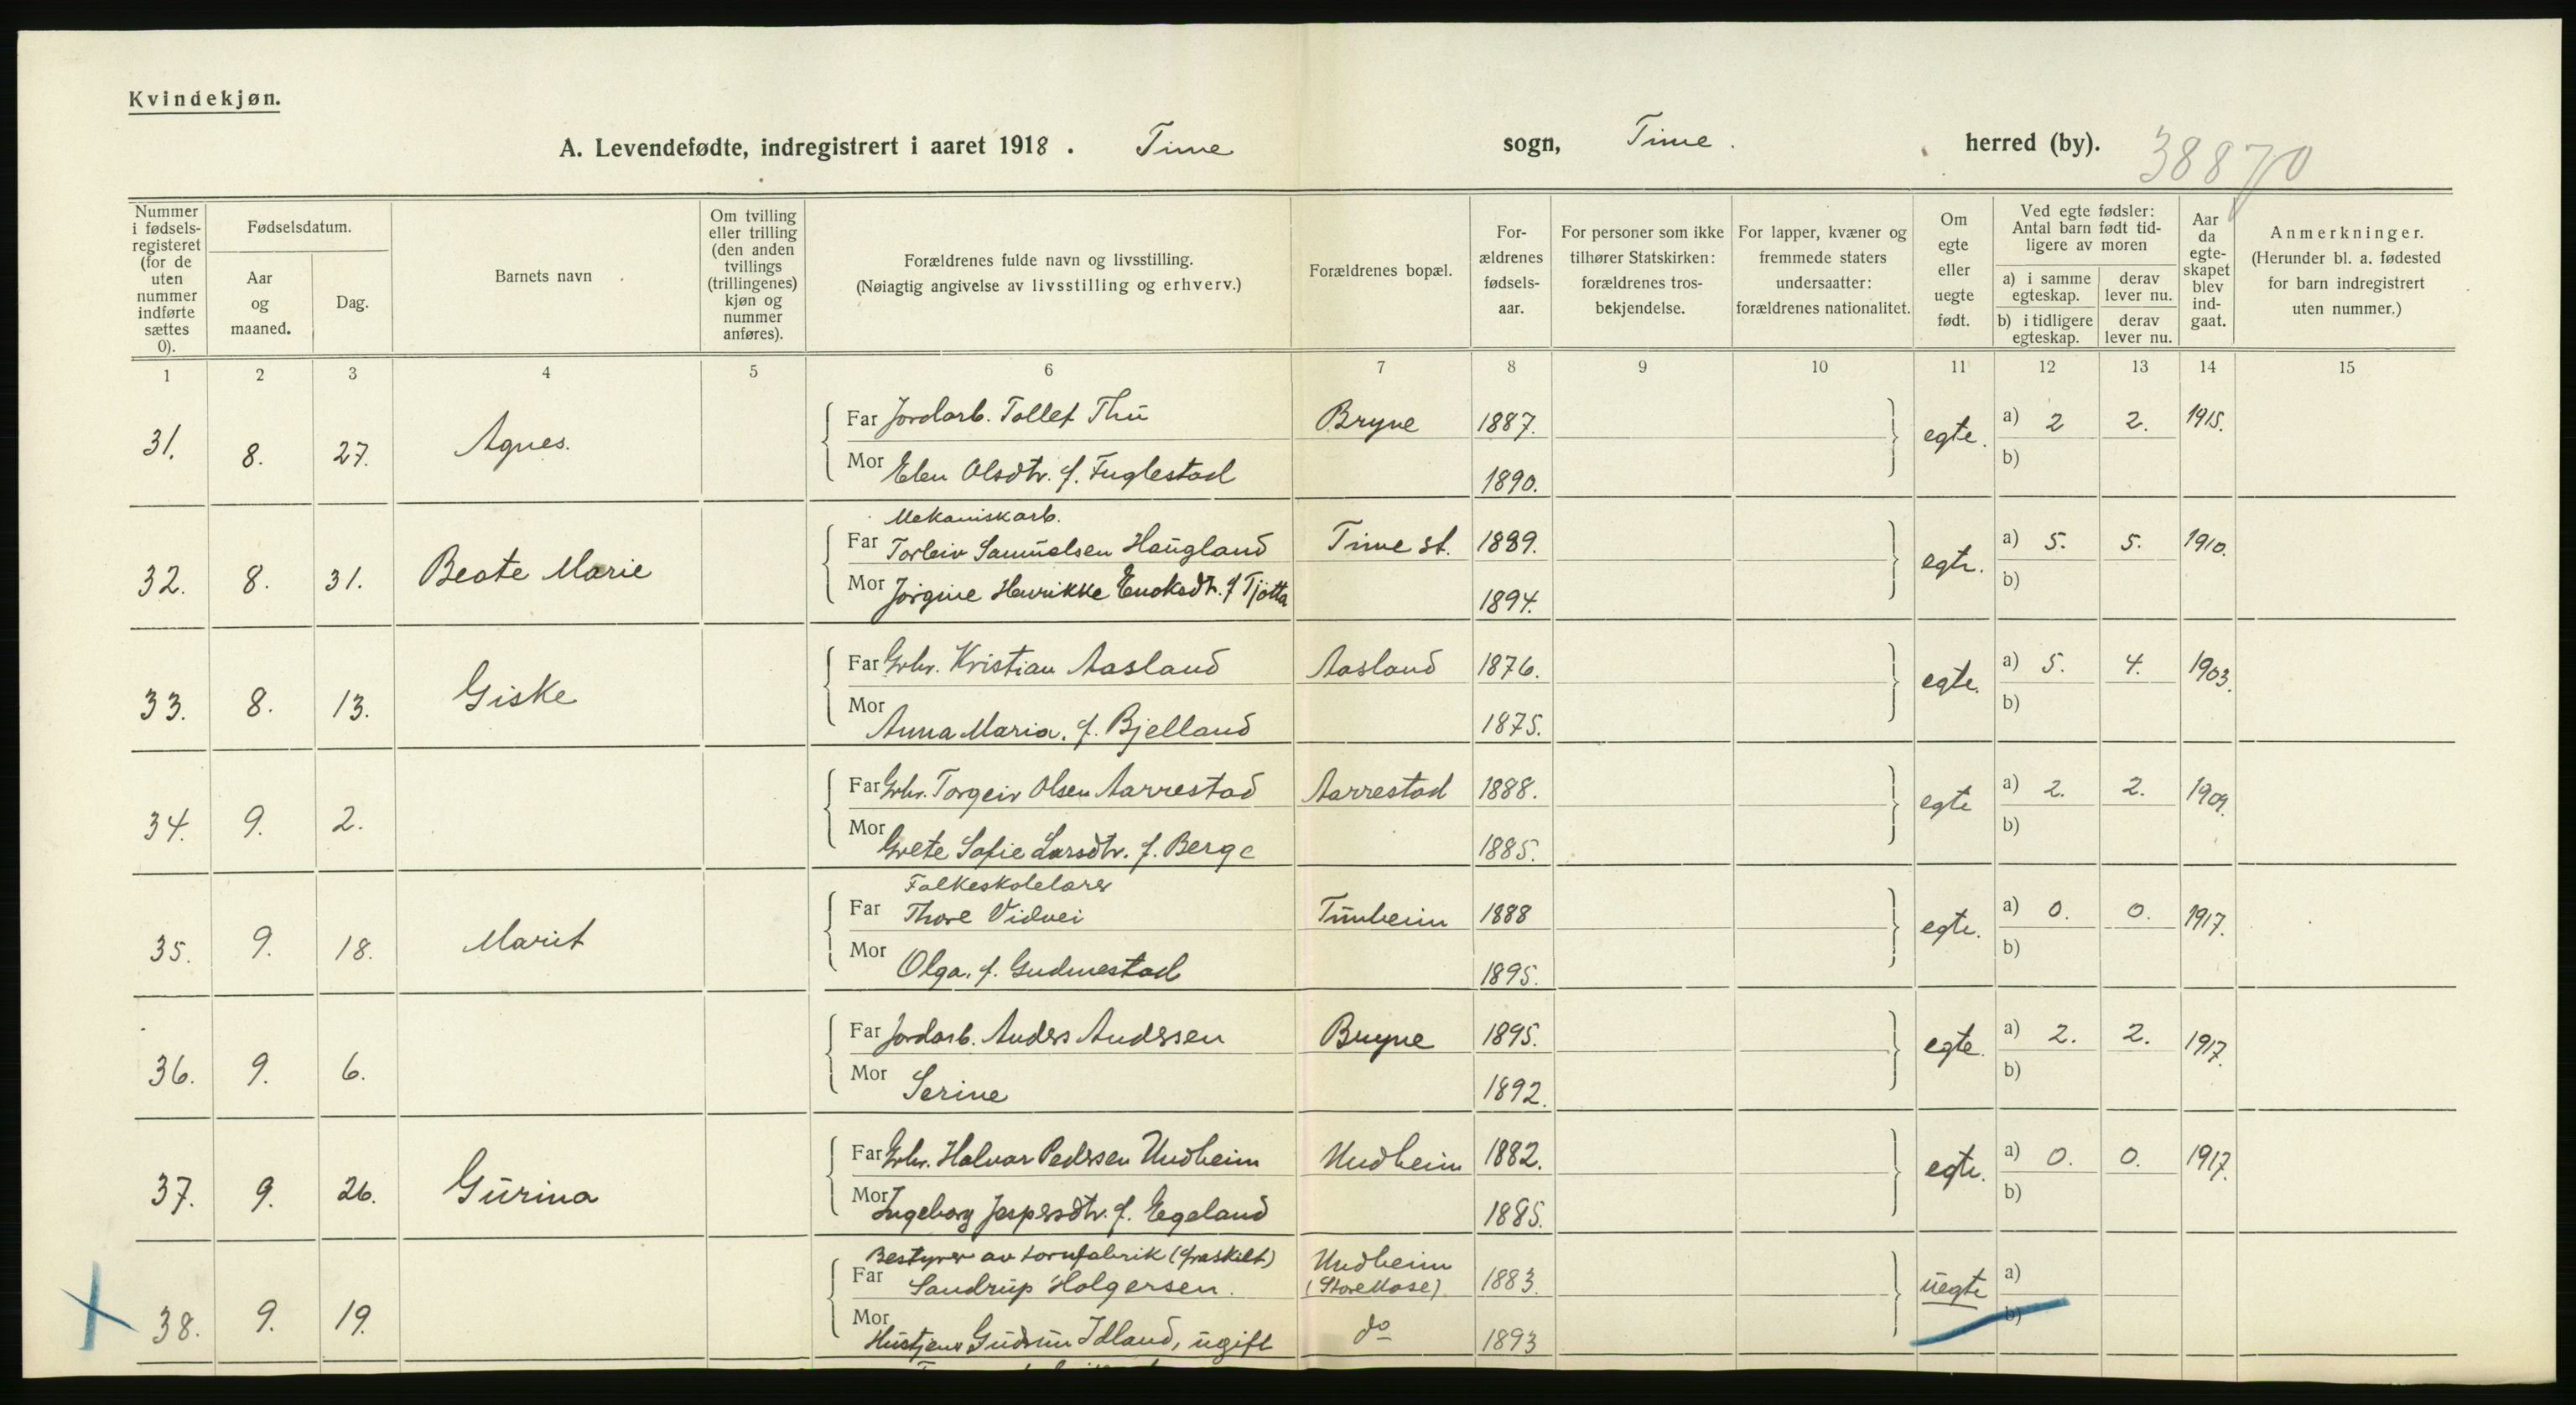 Kvindekjøn.
A. Levendefødte, indregistrert i aaret 1918. Time sogn, Time. herred (by).
38870
Nummer i fødsels-registeret (for de uten nummer indførte sættes 0).
Fødselsdatum.
Aar og maaned.
Dag.
Barnets navn
Om tvilling eller trilling (den anden tvillings (trillingenes) kjøn og nummer anføres).
Forældrenes fulde navn og livsstilling.
(Nøiagtig angivelse av livsstilling og erhverv.)
Forældrenes bopæl.
For-ældrenes fødsels-aar.
For personer som ikke tilhører Statskirken: forældrenes tros-bekjendelse.
For lapper, kvæner og fremmede staters undersaatter: forældrenes nationalitet.
Om egte eller uegte født.
Ved egte fødsler: Antal barn født tid-ligere av moren
a) i samme egteskap.
derav lever nu.
b) i tidligere egteskap.
derav lever nu.
Aar da egte-skapet blev ind-gaat.
Anmerkninger.
(Herunder bl. a. fødested for barn indregistrert uten nummer.)
1 2 3 4 5 6 7 8 9 10 11 12 13 14 15
31. 8. 27. Agnes.
Far Jordarb. Tollef Thu Bryne 1887. egte. a) 2 2. 1915.
Mor Elen Olsdtr. f. Fuglestad 1890. b)
Mekaniskarb.
32. 8. 31. Beate Marie
Far Torleiv Samuelsen Haugland Time st. 1889. egte. a) 5. 5. 1910.
Mor Jørgine Henrikke Enoksdtr. f Tjøtta 1894. b)
33. 8. 13. Giske
Far Grbr. Kristian Aasland Aasland 1876. egte. a) 5. 4. 1903.
Mor Anna Maria. f. Bjelland 1875. b)
34. 9. 2.
Far Grbr. Torgeir Olsen Aarrestad Aarrestad 1888. egte a) 2. 2. 1909.
Mor Grete Sofie Larsdtr. f. Berge 1885. b)
Folkeskolelærer
35. 9. 18. Marit
Far Thore Vidvei Tunheim 1888 egte. a) 0. 0. 1917.
Mor Olga. f. Gudmestad 1895. b)
36. 9. 6.
Far Jordarb. Anders Anderssen Bryne 1895. egte. a) 2. 2. 1917.
Mor Serine 1892. b)
37. 9. 26. Gurina
Far Grbr. Halvar Pedersen Undheim Undheim 1882. egte. a) 0. 0. 1917.
Mor Ingeborg Jespersdtr. f. Egeland 1885. b)
Bestyrer av torvfabrik (fraskilt) Undheim
38. 9. 19.
Far Sandrup Holgersen. (Store Mose) 1883. uegte a)
Mor Hustjen. Gudrun Idland, ugift do 1893 b)